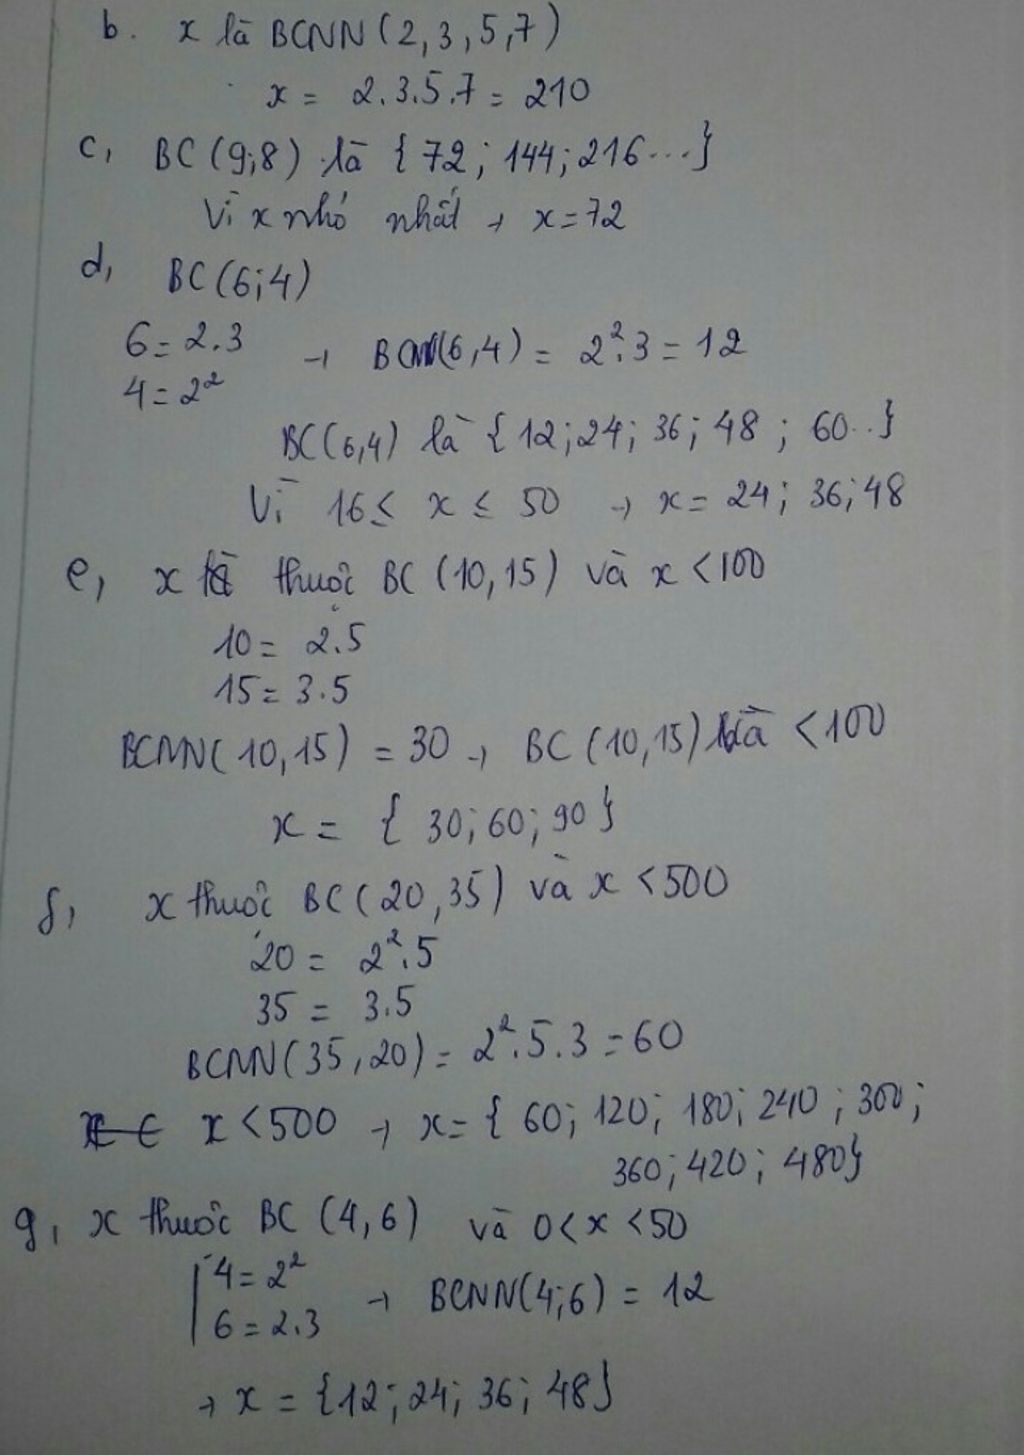 b. x là BCNN(2,3,5,7)
x = 2.3.5.7 = 210
c, BC(9;8) là {72; 144; 216...}
Vì x nhỏ nhất → x=72
d, BC(6;4)
6=2.3 → BCNN(6,4) = 2².3 = 12
4=2²
BC(6,4) là {12;24; 36; 48; 60..}
Vì 16≤ x ≤ 50 → x= 24; 36; 48
e, x thuộc BC(10,15) và x <100
10= 2.5
15= 3.5
BCNN(10,15) = 30 → BC(10,15) là <100
x = {30;60;90}
f, x thuộc BC(20,35) và x <500
20 = 2².5
35 = 3.5
BCNN(35,20) = 2².5.3 = 60
x<500 → x= {60; 120; 180; 240; 300;
360; 420; 480}
g, x thuộc BC (4,6) và 0< x <50
4=2² → BCNN(4;6) = 12
6=2.3
→ x = {12;24; 36; 48}